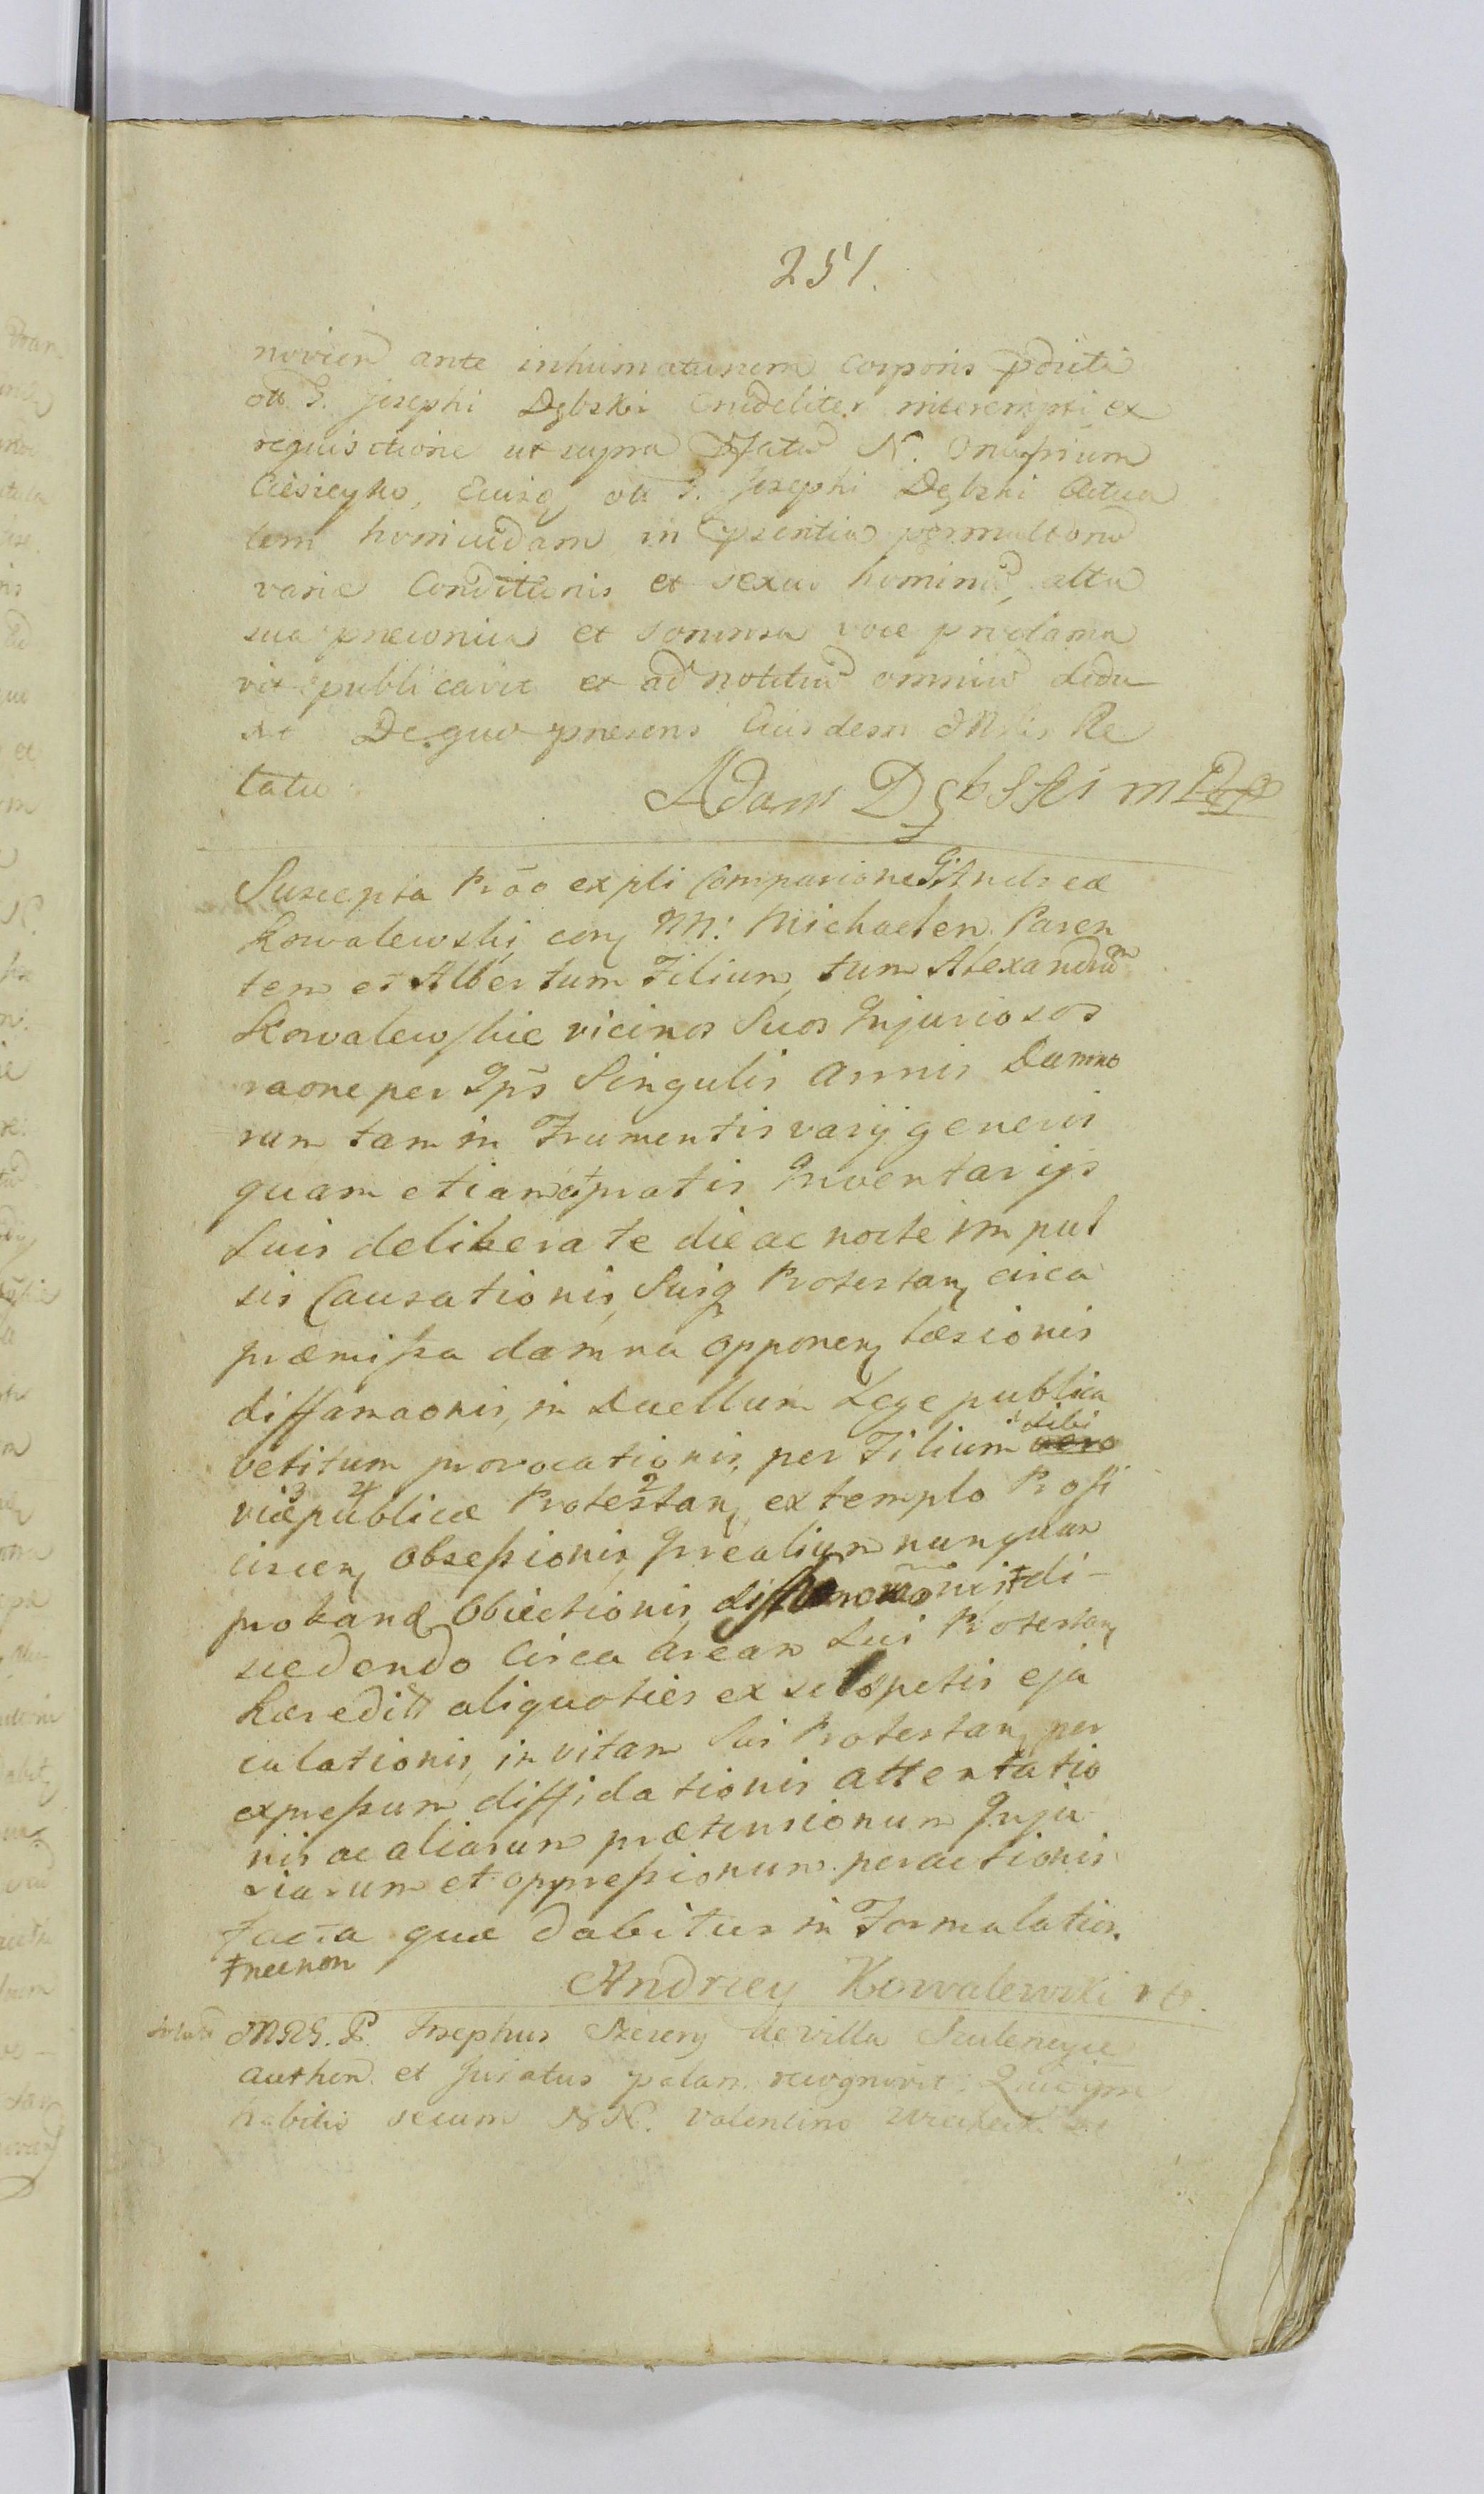 251.
noviter ante inhumationem Corporis pdicti
olī G. Josephi Dębski Crudeliter interempti ex
requisitione ut supra N. Onufrium
Ciesieyko, Eiusq olī G. Josephi Dębski Actua
lem homicidam in psentia permultorū
variæ Conditionis et sexus hominū, alta
sua præconica et sonorosa voce proclama
vit publicavit et ad notitiā omniū dedu
xit De quo præsens Eiusdem Mrlis Re
latio.
Adam Dębski mp
Suscepta Prāo expli Comparione G. Andreæ
Kowalewski con NN: Michaelem Paren
tem et Albertum Filium, tum Alexandrū
Kowalewskie vicinos Suos Injuriosos
raone per Ipš Singulis annis Damno
rum tam in Frumentis varij generis
quam etiam et pratis Inventarijs
Suis deliberate die ac nocte impul
sis Causationis, Suiq Protestan circa
præmissa damna opponen læsionis
diffamaonis, in Duellum Lege publica
vetitum provocationis, per Filium vero sibi
viæ publicæ Protestan extemplo Profi
ciscen Obsessionis, Irealium nunquam
proband Obiectionis, di-
scedendo Circa Aream Sui Protestan
hæredit aliquoties ex sclopetis eja
culationis, in vitam Sui Protestan per
expressum diffidationis attentatio
nis ac aliarum prætensionum Inju
riarum et oppressionum peractionis
facta quæ dabitur in Formalatior.
Ŧ necnon
Andrzey Kowalewski
MRG. P. Josephus de villa
authen. et Juratus palam recognovit. Quia ipse
habitis secum NN. Valentino